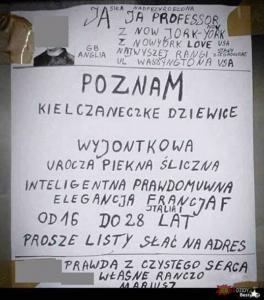 JA SIŁA NADPRZYRODZONA
JA PROFESSOR
Z NOW JORK-YORK
Z NOWYORK LOVE USA
GB
ANGLIA
NAJWYSZEJ RANGI
UL WASSYNGTONA USA
POZNAM
KIELCZANECZKE DZIEWICE
WYJONTKOWA
UROCZA PIEKNA ŚLICZNA
INTELIGENTNA PRAWDOMUWNA
ELEGANCJA FRANCJA F
ITALIA I
OD 16 DO 28 LAT
PROSZE LISTY SŁAĆ NA ADRES
PRAWDA Z CZYSTEGO SERCA
WŁASNE RANCZO
MARIUSZ